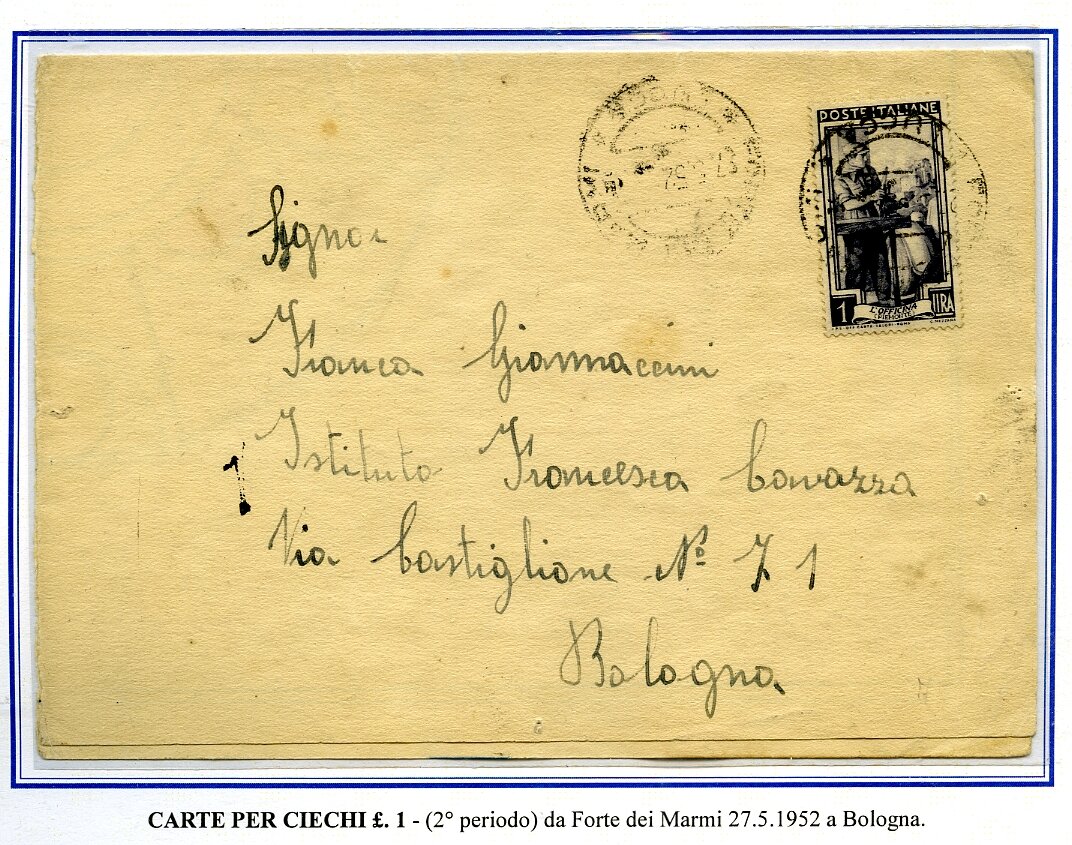 POSTE ITALIANE
1 LIRA
L'OFFICINA
(PIEMONTE)
27.5.52
LUCCA
Signor
Franca Giannaccini
Istituto Francesco Cavazza
Via Castiglione Nº 71
Bologna
CARTE PER CIECHI £. 1 - (2° periodo) da Forte dei Marmi 27.5.1952 a Bologna.